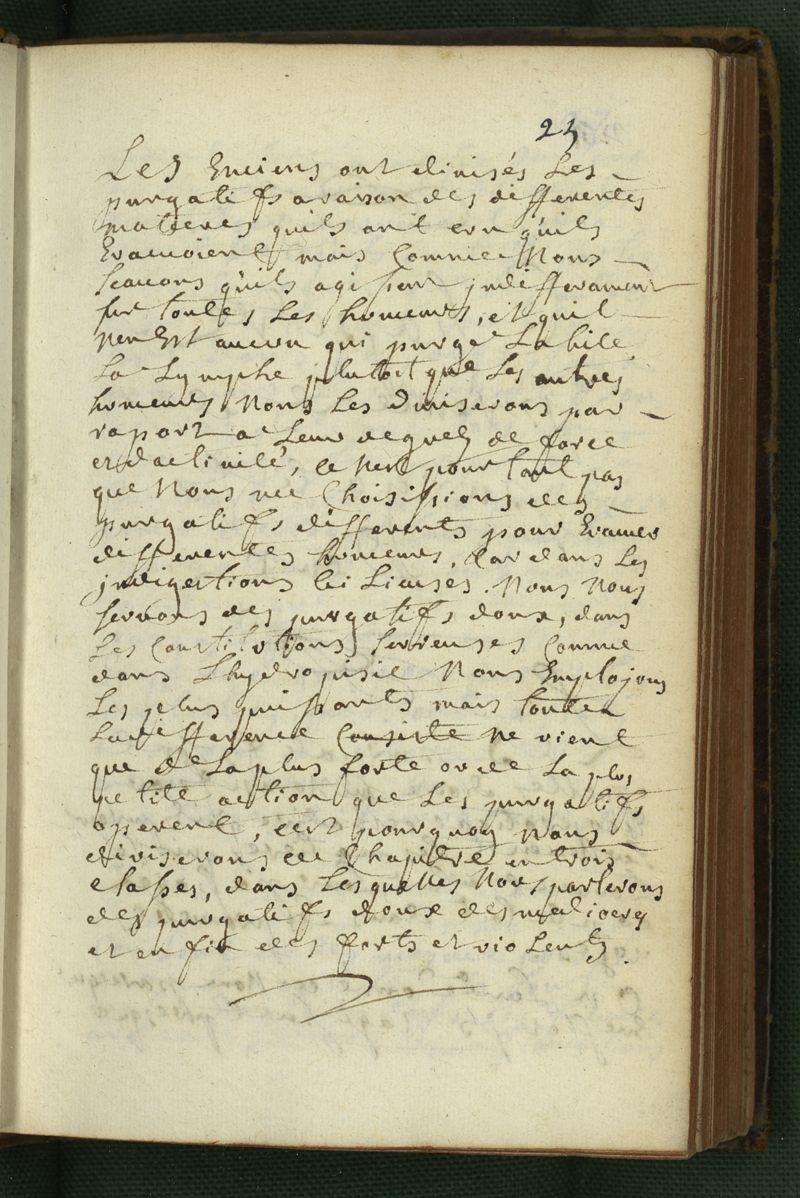 25
Les Enciens ont divisés Les
purgatifs a raison des differentes
matieres quils ont cru quils
Evacuoient mais Comme Nous
Scavons quils agissent jndifferament
sur toutes Les humeurs, et quil
nen Est aucun qui purge La bile
La Lymphe plutost que Les autres
humeurs Nous Les Diviserons par
raport a Leur degrez de force
et dactivité, ce nest pourtant pas
que Nous ne Choisissions des
purgatifs differents pour Evacuer
differentes humeurs, Car dans Les
jndigestions bilieuses Nous Nous
servons des purgatifs doux, dans
Les Constitutions sereuses Comme
dans Lhydropisie Nous Employons
Les plus puissants mais toute
La difference Consiste ne vient
que de La plus forte ou de La plus
petite action que Les purgatifs
operent, cest pourquoy Nous
diviserons ce Chapitre en trois
classes, dans Lesquelles Nous parlerons
des purgatifs doux des mediocres
et enfin des forts et violents.